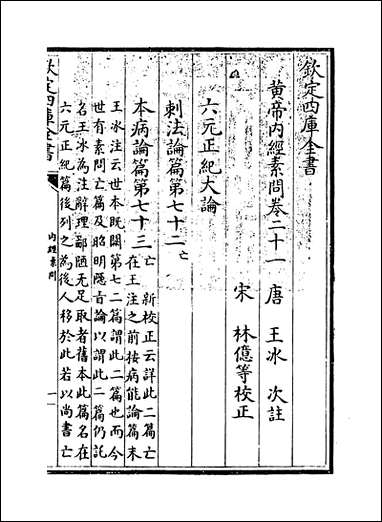 欽定四庫全書
黃帝内經素問卷二十一
唐 王冰 次註
宋 林億等校正
六元正紀大論
刺法論篇第七十二亡
本病論篇第七十三亡
新校正云詳此二篇亡
在王注之前按病能論篇末
王冰注云世本既闕第七二篇謂此二篇也而今
世有素問亡篇及昭明隱㫖論以謂此二篇仍託
名王冰為注辭理鄙陋无足取者舊本此篇名在
六元正紀篇後列之為後人移於此若以尚書亡
欽定四庫全書
内經素問
一